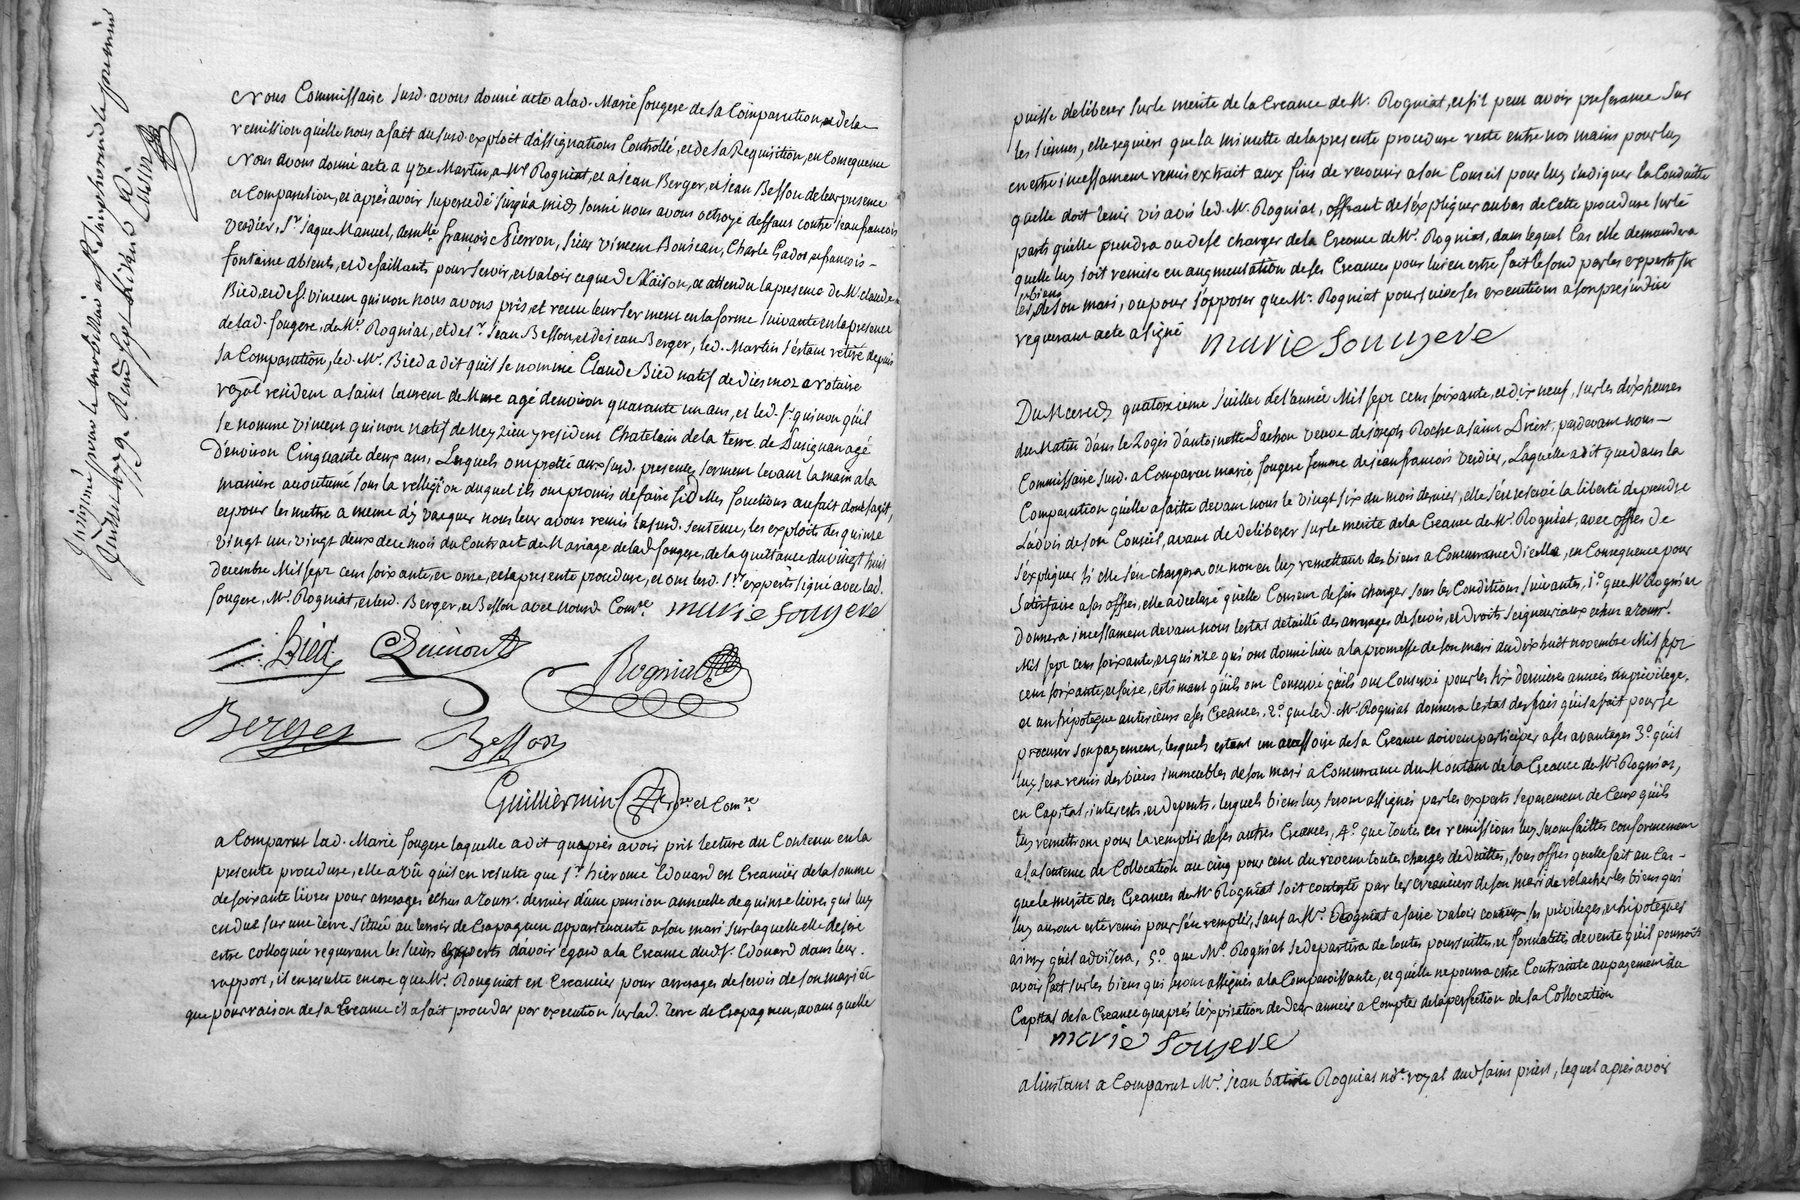 Nous Commissaire susd. avons donné acte a lad. Marie fougere de sa Comparution, et de la
remission qu'elle nous a fait du susd. exploit d'assignations Controllé, et de sa Requisition, en Consequence
Nous avons donné acte a Martin, a Mr. Rogniat, et a Jean Berger, et Jean Besson de leur presence
et Comparution, et aprés avoir supercedé jusqu'a midy sonné nous avons octroyé deffaut contre Jean francois
Verdier, Sr. Jaque Manuel, demlle. françoise Pierron, sieur Vincent Bonjean, Charle Gados, et francois
fontaine absents, et defaillants pour servir, et valoir ce que de Raison, et attendu la presence de Mr. claude
Bied, et de Sr. vincent quinon nous avons pris, et receu leur serment en la forme suivante en la presence
de lad. fougere, de Mr. Rogniat, et de Sr. Jean Besson, et de Jean Berger, led. Martin s'etant retiré depuis
sa Comparution, led. Mr. Bied a dit qu'il se nomme Claude Bied natif de Diesmoz notaire
royal resident a saint laurent de Mure agé d'environ quarante un ans, et led. Sr. quinon qu'il
se nomme vincent quinon natif de Meyzieu y resident Chatelain de la terre de Pusignan agé
d'environ Cinquante deux ans, Lesquels ont preté aux susd. presentes serment levant la main a la
maniere accoutumé sous la relligion duquel ils ont promis de faire fidelles fonctions au fait dont s'agit,
et pour les mettre a meme d'y vacquer nous leur avons remis la susd. sentence, les exploits des quinze
vingt un, vingt deux de ce mois du Contract de Mariage de lad. fougere, de la quittance du vingt huit
decembre Mil sept cent soixante, et onze, et la presente procedure, et ont lesd. Srs. experts signé avec lad.
fougere, Mr. Rogniat, et lesd. Berger, et Besson avec nousd. Comre. marie fougere
Bied Quinon Rogniat
Berger Besson
Guilliermin Comre.
a Comparut lad. Marie fougere laquelle a dit qu'aprés avoir prit lecture du Contenu en la
presente procedure, elle a vû qu'il en resulte que Sr. hierome Edouard est Creancier de la somme
de soixante livres pour arrerages echus a Touss. dernier d'une pension annuelle de quinze livres qui luy
est due sur une terre située au terroir de Crapagneu appartenante a son mari sur laquelle elle desire
estre colloquée requerant les sieurs experts d'avoir egard a la Creance dud. Sr. Edouard dans leur
rapport, il en resulte encore que Mr. Rougniat est Creancier pour arrerages de servis de son mari et
que pour raison de sa Creance il a fait proceder par execution sur lad. terre de Crapagneu, avant quelle
puisse deliberer sur le merite de la Creance de Mr. Rogniat, et s'il peut avoir preferance sur
les siennes, elle requiert que la minutte de la presente procedure reste entre nos mains pour luy
en estre incessament remis extrait aux fins de recourir a son Conseil pour luy indiquer la Conduitte
quelle doit tenir vis avis led. Mr. Rogniat, offrant de s'expliquer au bas de cette procedure sur le
parti qu'elle prendra ou de se charger de la Creance de Mr. Rogniat, dans lequel Cas elle demandera
quelle luy soit remise en augmentation de ses Creances pour lui en estre fait le fond par les experts sur
les biens de son mari, ou pour s'opposer que Mr. Rogniat poursuive ses executions a son prejudice
requerant acte a signé marie fougere
Du Mercredy quatorzieme Juillet de l'année Mil sept cent soixante, et dix neuf, sur les dix heures
du Matin dans le Logis d'antoinette Pachon veuve de joseph Roche a saint Priest, pardevant nous
Commissaire susd. a Comparut marie fougere femme de jean francois verdier, Laquelle a dit que dans la
Comparution qu'elle a faitte devant nous le vingt six du mois dernier, elle s'est reservé la liberté de prendre
L'advis de son Conseil, avant de deliberer sur le merite de la Creance de Mr. Rogniat, avec offres de
s'expliquer si elle s'en chargera ou non en luy remettant des biens a Concurrance d'icelle, en Consequence pour
Satisfaire a ses offres, elle a declaré qu'elle Consent de s'en charger sous les Conditions suivantes, 1°. que Mr. Rogniat
donnera incessament devant nous l'estat detaillé des arrerages de servis, et droits seigneuriaux echus a Touss.
Mil sept cent soixante, et quinze qui ont donné lieu a la promesse de son mari du dix huit novembre Mil sept
cent soixante, et seize, estimant qu'ils ont Conservé qu'ils ont Conservé pour les six dernieres années un privilege,
et un hipoteque anterieurs a ses Creances, 2°. que led. Mr. Rogniat donnera l'estat des frais qu'il a fait pour se
procurer son payement, lesquels estant un accessoire de sa Creance doivent participer a ses avantages 3°. qu'il
luy sera remis des biens immeubles de son mari a Concurrance du Montant de la Creance de Mr. Rogniat,
en Capital, interests, et depents, lesquels biens luy seront assignés par les experts separement de Ceux qu'ils
luy remettront pour la remplir de ses autres Creances, 4°. que toutes ces remissions luy seront faittes conformement
a la sentence de Collocation au cinq pour cent du revenu toutes charges deduittes, sous offres quelle fait au Cas
que le merite des Creances de Mr. Rogniat soit contesté par les creanciers de son mari de relacher les biens qui
luy auront esté remis pour s'en remplir, sauf a Mr. Rogniat a faire valoir contr'eux ses privileges, et hipoteques
ainsy qu'il advisera, 5°. que Mr. Rogniat se departira de toutes poursuittes, et formalités de vente qu'il pourroit
avoir fait sur les biens qui seront assignés a la Comparoissante, et qu'elle ne pourra estre Contrainte au payement du
Capital de la Creance qu'aprés l'expiration de deux années a Compter de la perfection de la Collocation
marie fougere
a l'instant a Comparut Mr. jean batiste Rogniat nore. royal aud. saint priest, lequel aprés avoir